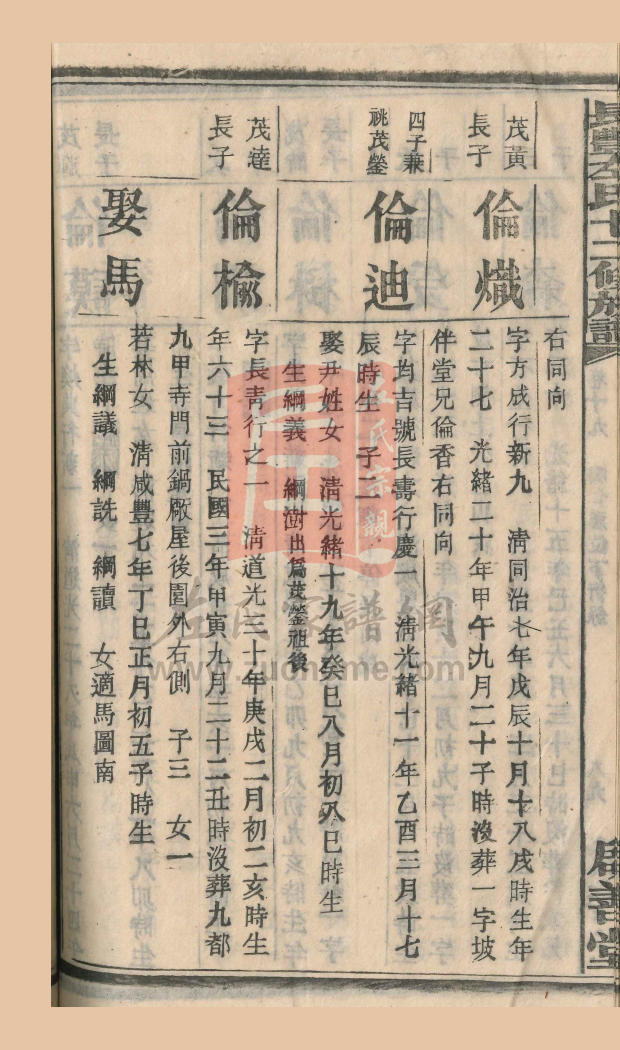 長豐左氏十二修族譜
啟善堂
右同向
茂黃
長子
倫熾
字方成行新九 清同治七年戊辰十月十八戌時生年
二十七 光緒二十年甲午九月二十子時沒葬一字坡
伴堂兄倫香右同向
四子兼
祧茂鎣
倫迪
字均吉號長壽行慶一 清光緒十一年乙酉三月十七
辰時生 子二
娶尹姓女 清光緒十九年癸巳八月初八巳時生
生綱義 綱澍出爲茂鎣祖後
茂達
長子
倫檢
字長靑行之一 清道光三十年庚戌二月初二亥時生
年六十三 民國三年甲寅九月二十二丑時沒葬九都
九甲寺門前鍋厰屋後園外右側 子三 女一
娶馬
若林女 清咸豐七年丁巳正月初五子時生
生綱議 綱詵 綱讀 女適馬圖南
左氏家譜網
www.zuoname.com
左氏宗親